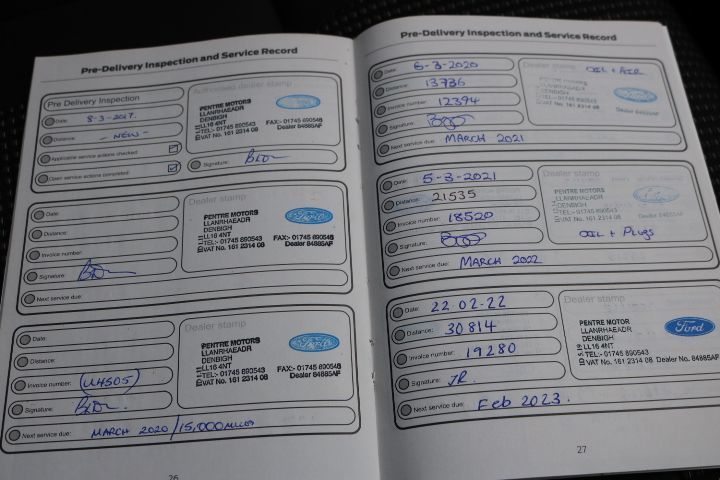 Pre-Delivery Inspection and Service Record
Pre Delivery Inspection
Date: 8-3-2017.
Distance: - NEW -
Applicable service actions checked
Open service actions completed
Authorised dealer stamp
PENTRE MOTORS
LLANRHAEADR
DENBIGH
LL16 4NT FAX:- 01745 890548
TEL:- 01745 890543 Dealer 84885AF
VAT No. 161 2314 08
Signature:
Date:
Distance:
Invoice number:
Signature:
Next service due:
Dealer stamp
PENTRE MOTORS
LLANRHAEADR
DENBIGH
LL16 4NT FAX:- 01745 890548
TEL:- 01745 890543 Dealer 84885AF
VAT No. 161 2314 08
Ford
Date:
Distance:
Invoice number: (U4505)
Signature:
Next service due: MARCH 2020/15,000 MILES
Dealer stamp
PENTRE MOTORS
LLANRHAEADR
DENBIGH
LL16 4NT FAX:- 01745 890548
TEL:- 01745 890543 Dealer 84885AF
VAT No. 161 2314 08
Ford
26
Pre-Delivery Inspection and Service Record
Date: 6-3-2020
Distance: 13736
Invoice number: 12394
Signature:
Next service due: MARCH 2021
Dealer stamp
OIL + AIR
PENTRE MOTORS
LLANRHAEADR
DENBIGH
LL16 4NT
TEL:- 01745 890543
VAT No. 161 2314 08
Date: 5-3-2021
Distance: 21535
Invoice number: 18520
Signature:
Next service due: MARCH 2022
Dealer stamp
PENTRE MOTORS
LLANRHAEADR
DENBIGH
LL16 4NT
TEL:- 01745 890543
VAT No. 161 2314 08
OIL + Plugs
Date: 22-02-22
Distance: 30814
Invoice number: 19280
Signature: JR
Next service due: Feb 2023.
Dealer stamp
PENTRE MOTOR
LLANRHAEADR
DENBIGH
LL16 4NT
TEL:- 01745 890543
VAT No. 161 2314 08 Dealer No. 84885AF
Ford
27